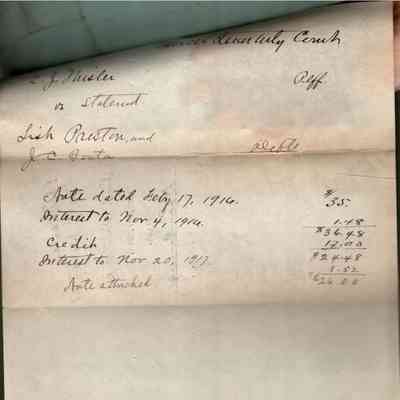 Quarterly Court
J. Thisler Plff.
vs Statement
Lish Preston, and
J. C. Defts
Note dated Feby 17, 1916. $35.
Interest to Nov 4, 1916. 1.48
$36.48
Credit 12.00
$24.48
Interest to Nov 20, 1917. 1.52
$26.00
Note attached